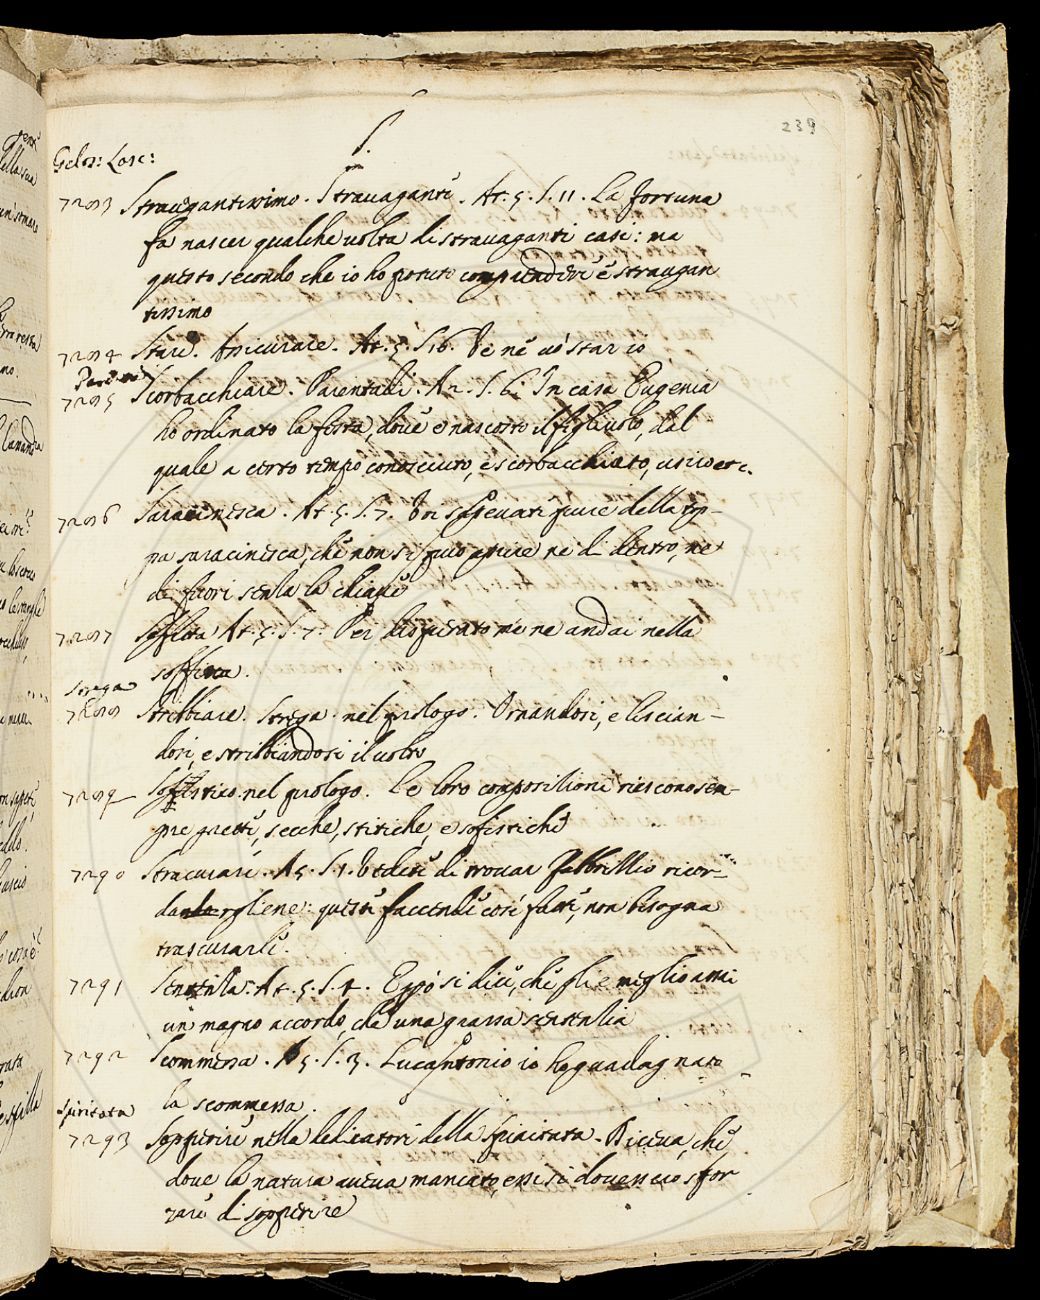 239
S.
Gelos: Lasc:
7283 Stravagantissimo. Stravaganti. At. 5. S. 11. La fortuna
fa nascer qualche volta di stravaganti casi: ma
questo secondo che io ho potuto comprendere è stravagan
tissimo
7284 Stare. Assicurare. At. 5. S. 16. Ve ne vo' star io
7285 Scorbacchiare. Parentadi. A 2. S. 6. In casa Eugenia
ho ordinato la festa, dove è nascosto il figliuolo, dal
quale a certo tempo conosciuto, e scorbacchiato,
7286 Saracinesca. At. 5. S. 7. della top-
pa saracinesca, che non si può aprire nè di dentro, nè
di fuori senza la chiave
7287 Soffitta At. 5. S. 7. Per disperato me ne andai nella
soffitta.
Strega
7288 Stribbiare. Strega nel prologo. Ornandosi, e liscian-
dosi, e stribbiandosi il volto
7289 Sofistico nel prologo. Le loro composizioni riescono sem-
pre grette, secche, stitiche, e sofistiche
7290 Stracurare. At. 5. S. 1. Vedete di trovar Fabbrizio ricor-
dargliene: queste faccende così fatte, non bisogna
trascurarle.
7291 Sentenza. At. 5. S. 4. E però si dice, che gli è meglio
un magro accordo, che una grassa sentenzia
7292 Scommessa. A 5. S. 3. Lucantonio io ho guadagnato
la scommessa.
Spiritata
7293 Sopperire nella dedicatori della Spiritata. Diceva, che
dove la natura aveva mancato, essi si dovessero sfor
zare di sopperire